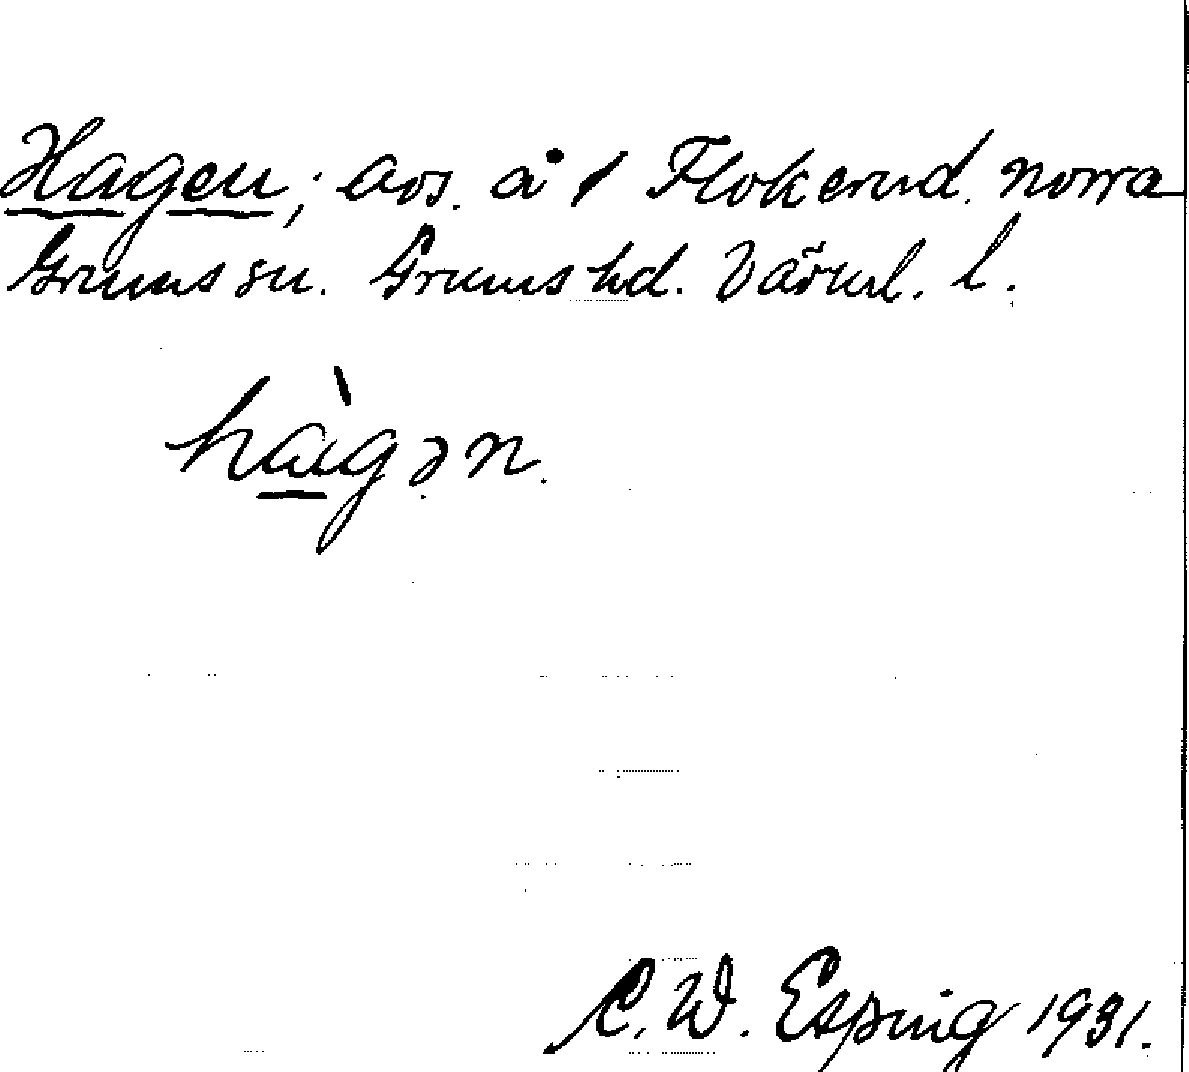 Hagen; avs. å 1 Flokerud norra
Grums sn. Grums hd. Värml. l.
hàgən.
C. W. Esping 1931.